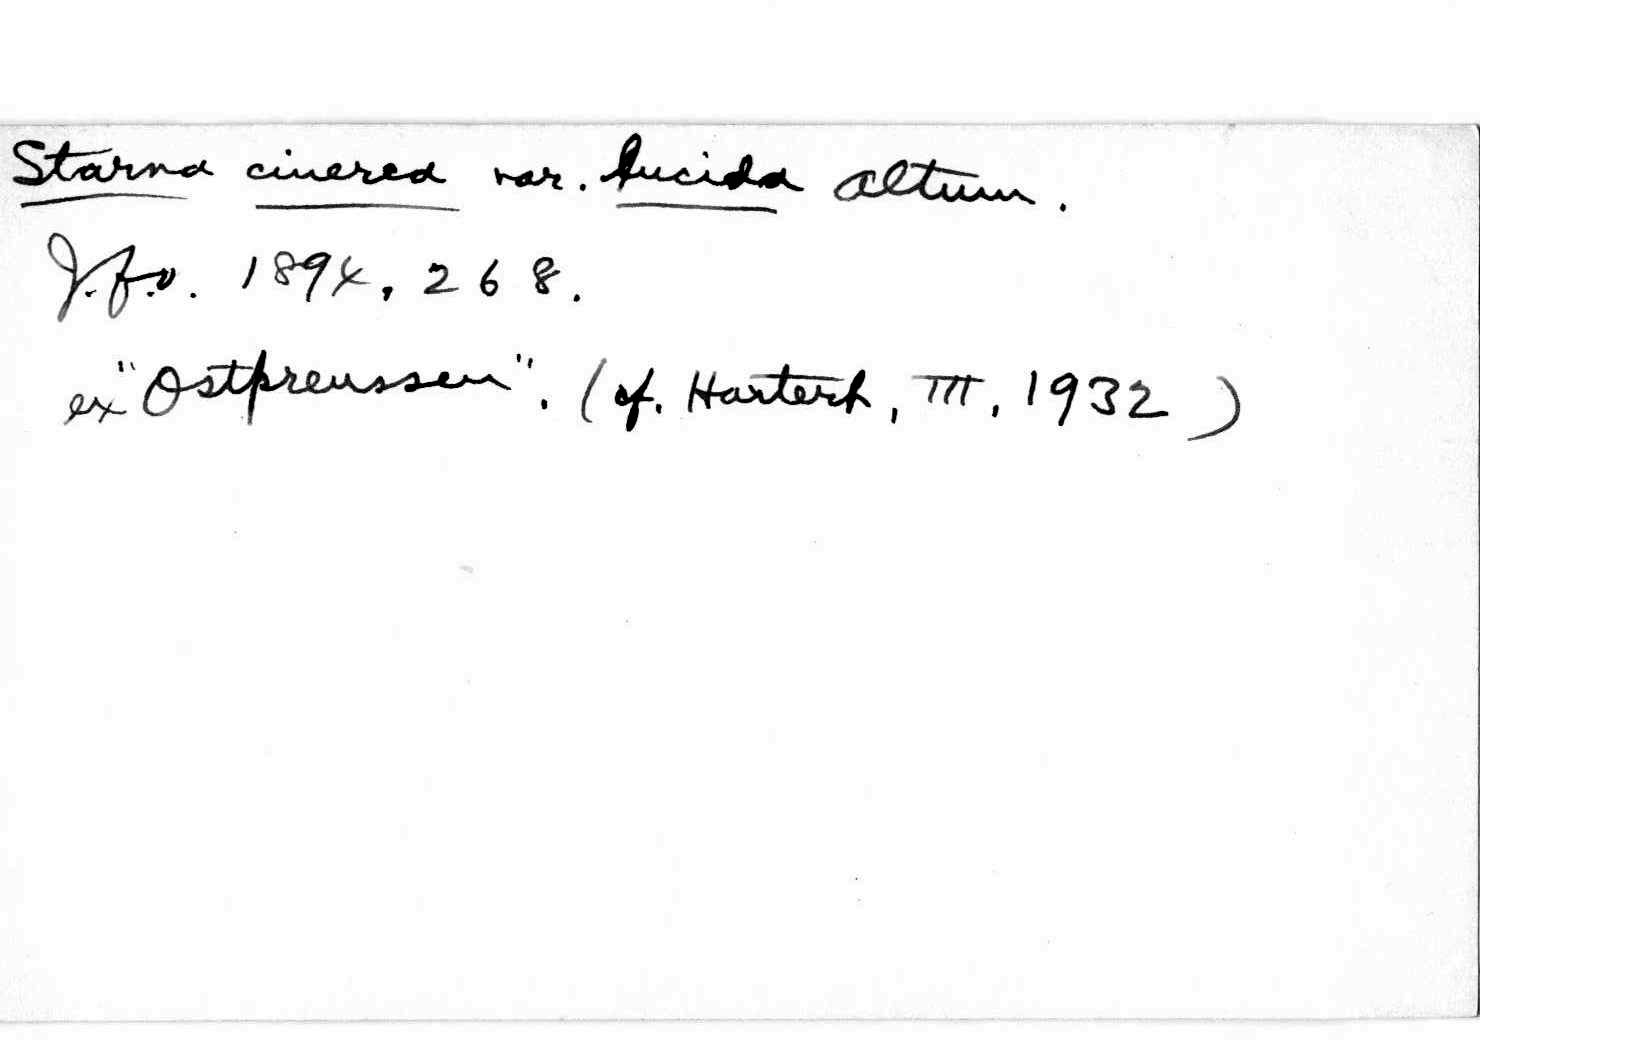 Starna cinerea var. lucida Altum.
J.f.O. 1894, 268.
ex "Ostpreussen". (cf. Hartert, III, 1932)